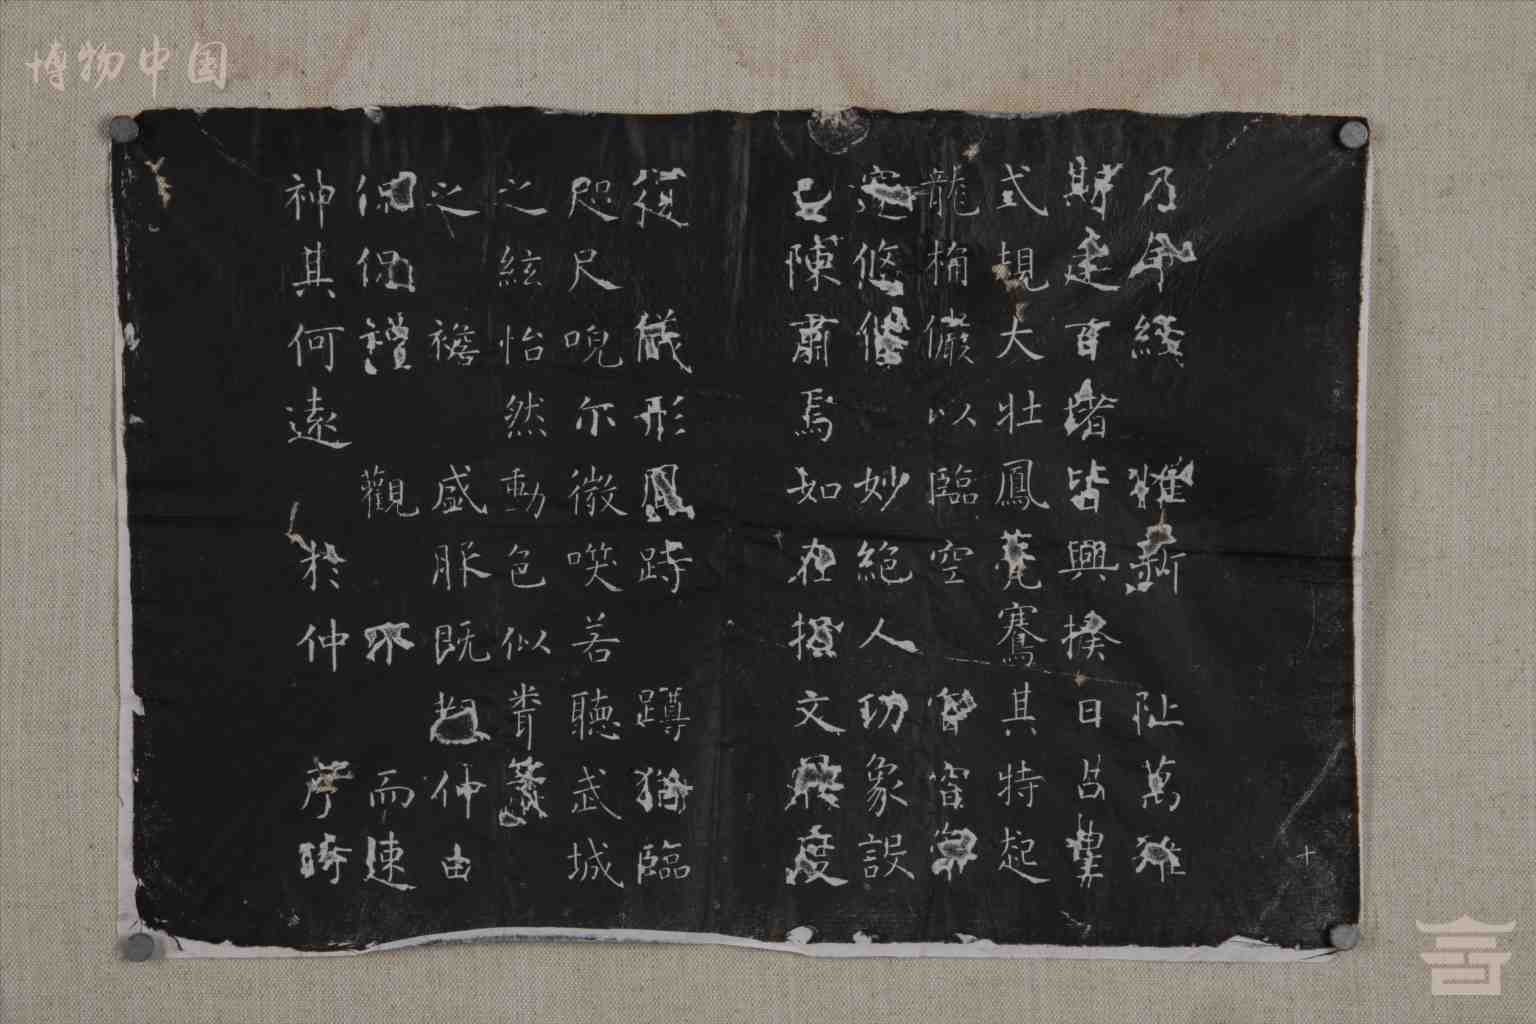 博物中国
乃命經惟新阯萬雉
斯建百堵皆興揆日占星
式規大壯鳳甍騫其特起
龍桷儼以臨空窅窅崇
邃悠悠妙絕人功象設
已陳肅焉如在握文履度
復儀形鳳跱蹲猶臨
咫尺唲尔微咲若聽武城
之絃怡然動色似
之襜盛服既覩仲由
侃侃禮觀不而速
神其何遠於仲序時